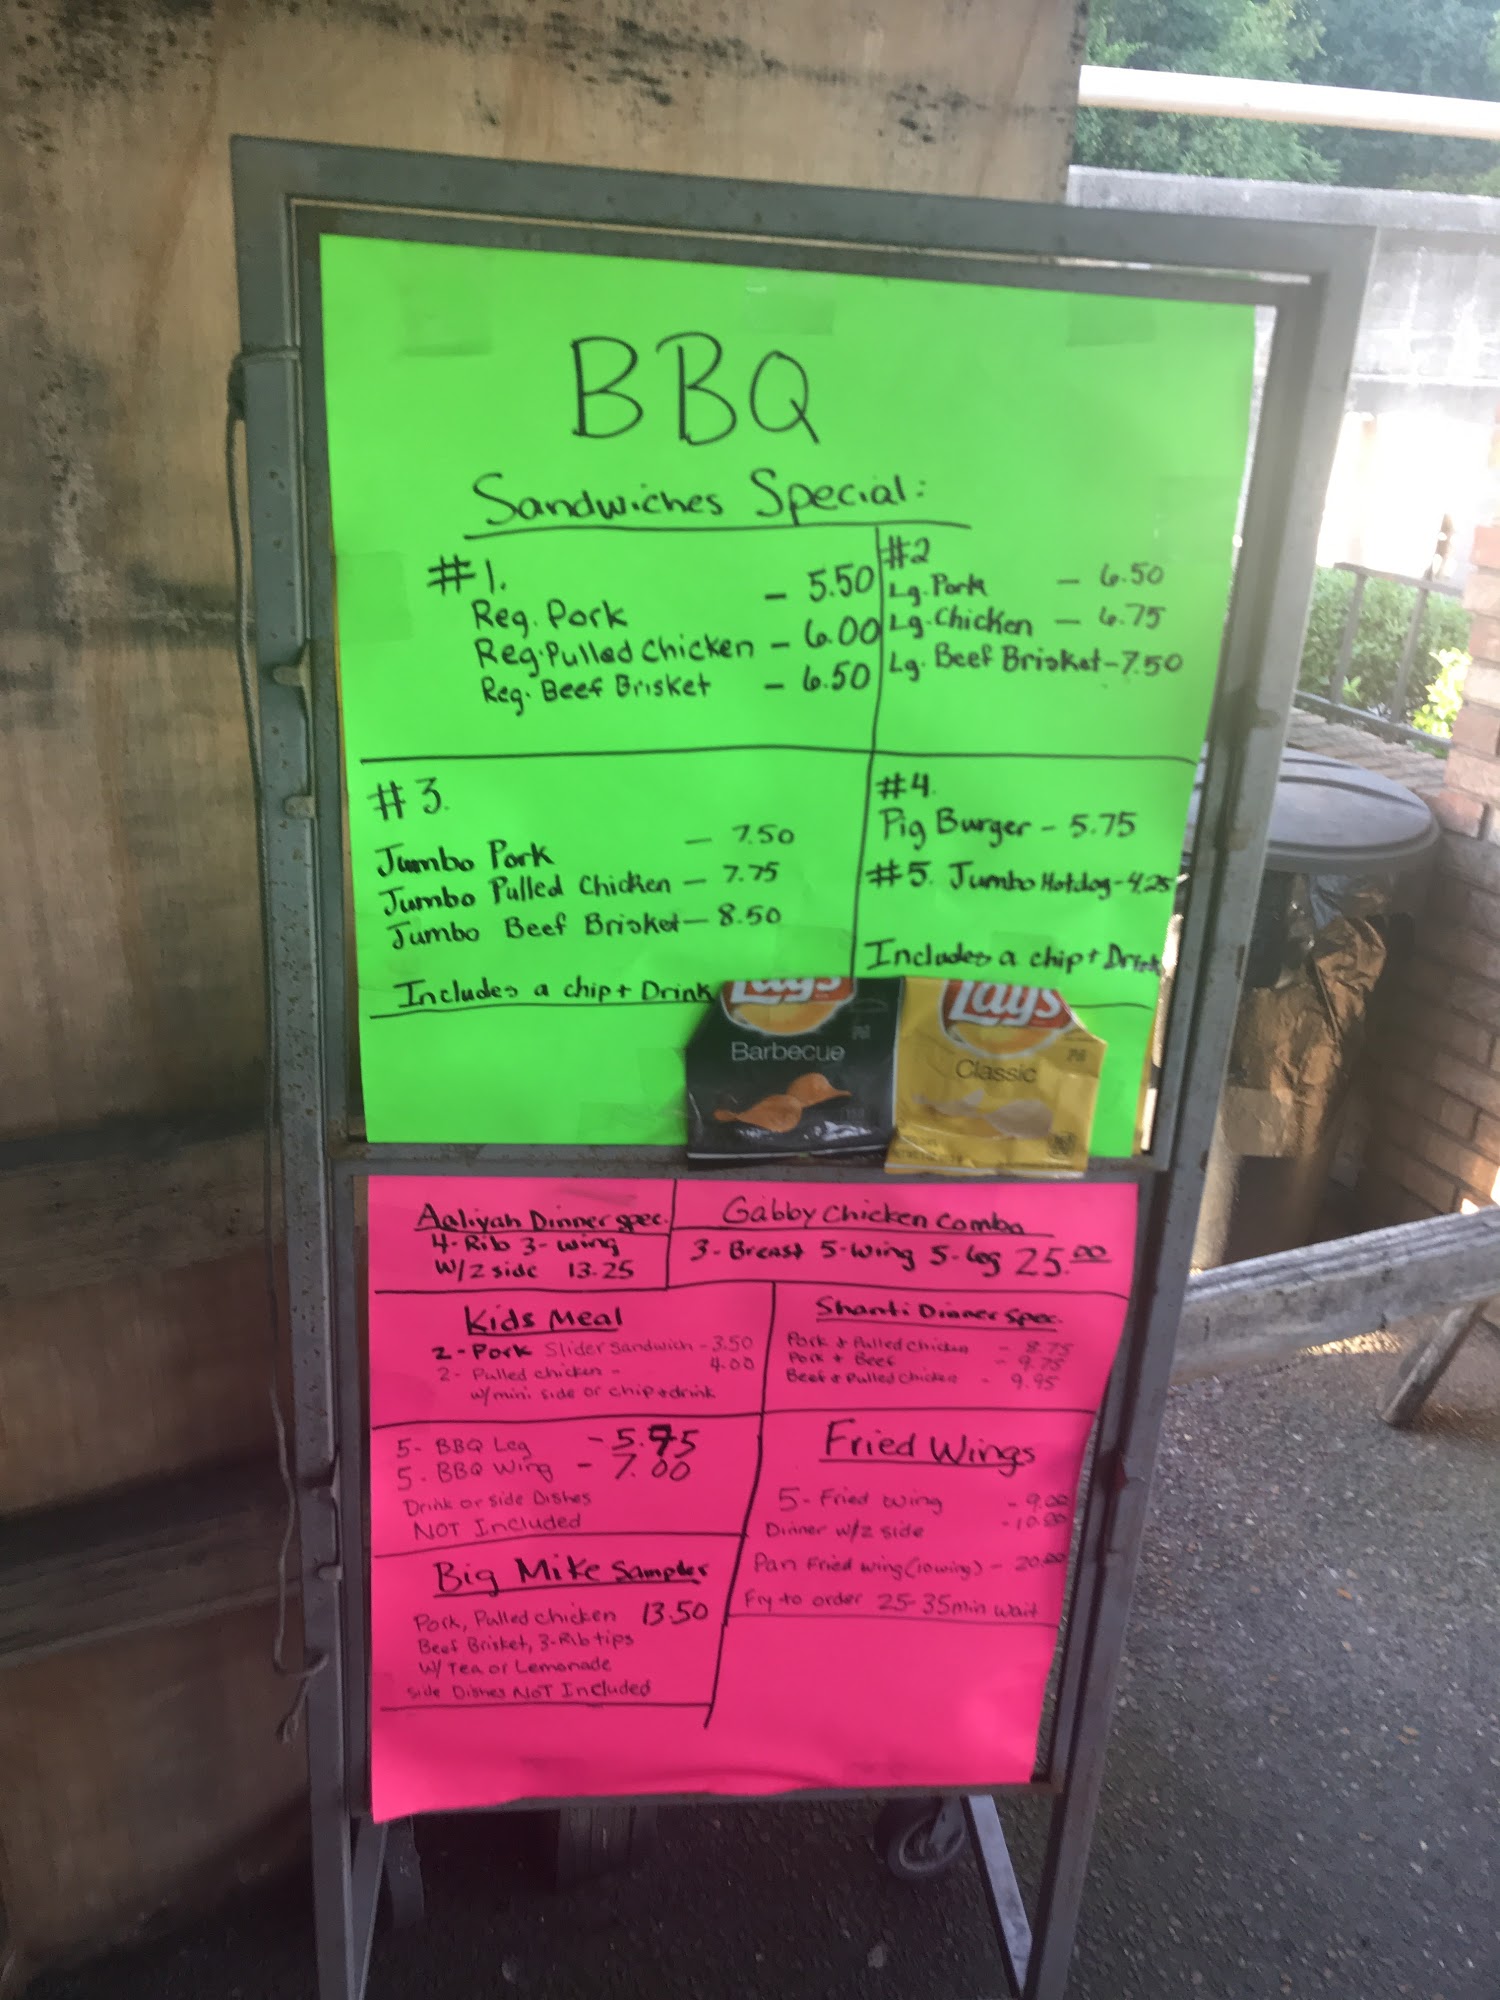 BBQ
Sandwiches Special:
#1.
Reg. Pork - 5.50
Reg. Pulled Chicken - 6.00
Reg. Beef Brisket - 6.50
#2
Lg. Pork - 6.50
Lg. Chicken - 6.75
Lg. Beef Brisket - 7.50
#3.
Jumbo Pork - 7.50
Jumbo Pulled Chicken - 7.75
Jumbo Beef Brisket - 8.50
Includes a chip + Drink
#4.
Pig Burger - 5.75
#5. Jumbo Hotdog - 4.25
Includes a chip + Drink
Lay's
Barbecue
Lay's
Classic
Aaliyah Dinner spec.
4- Rib 3- wing
W/2 side 13.25
Gabby Chicken Combo
3- Breast 5-wing 5-Leg 25.00
Kids Meal
2 - Pork Slider Sandwich - 3.50
2 - Pulled chicken - 4.00
w/mini side or chip + drink
Shanti Dinner Spec.
Pork & Pulled Chicken - 8.75
Pork + Beef - 9.75
Beef & Pulled Chicken - 9.95
5- BBQ Leg - 5.75
5- BBQ Wing - 7.00
Drink or side Dishes
NOT Included
Fried Wings
5- Fried wing - 9.00
Dinner w/2 side - 10.00
Pan Fried wing (10 wing) - 20.00
Fry to order 25-35 min wait
Big Mike Sampler
Pork, Pulled chicken 13.50
Beef Brisket, 3-Rib tips
W/ Tea or Lemonade
Side Dishes NOT Included